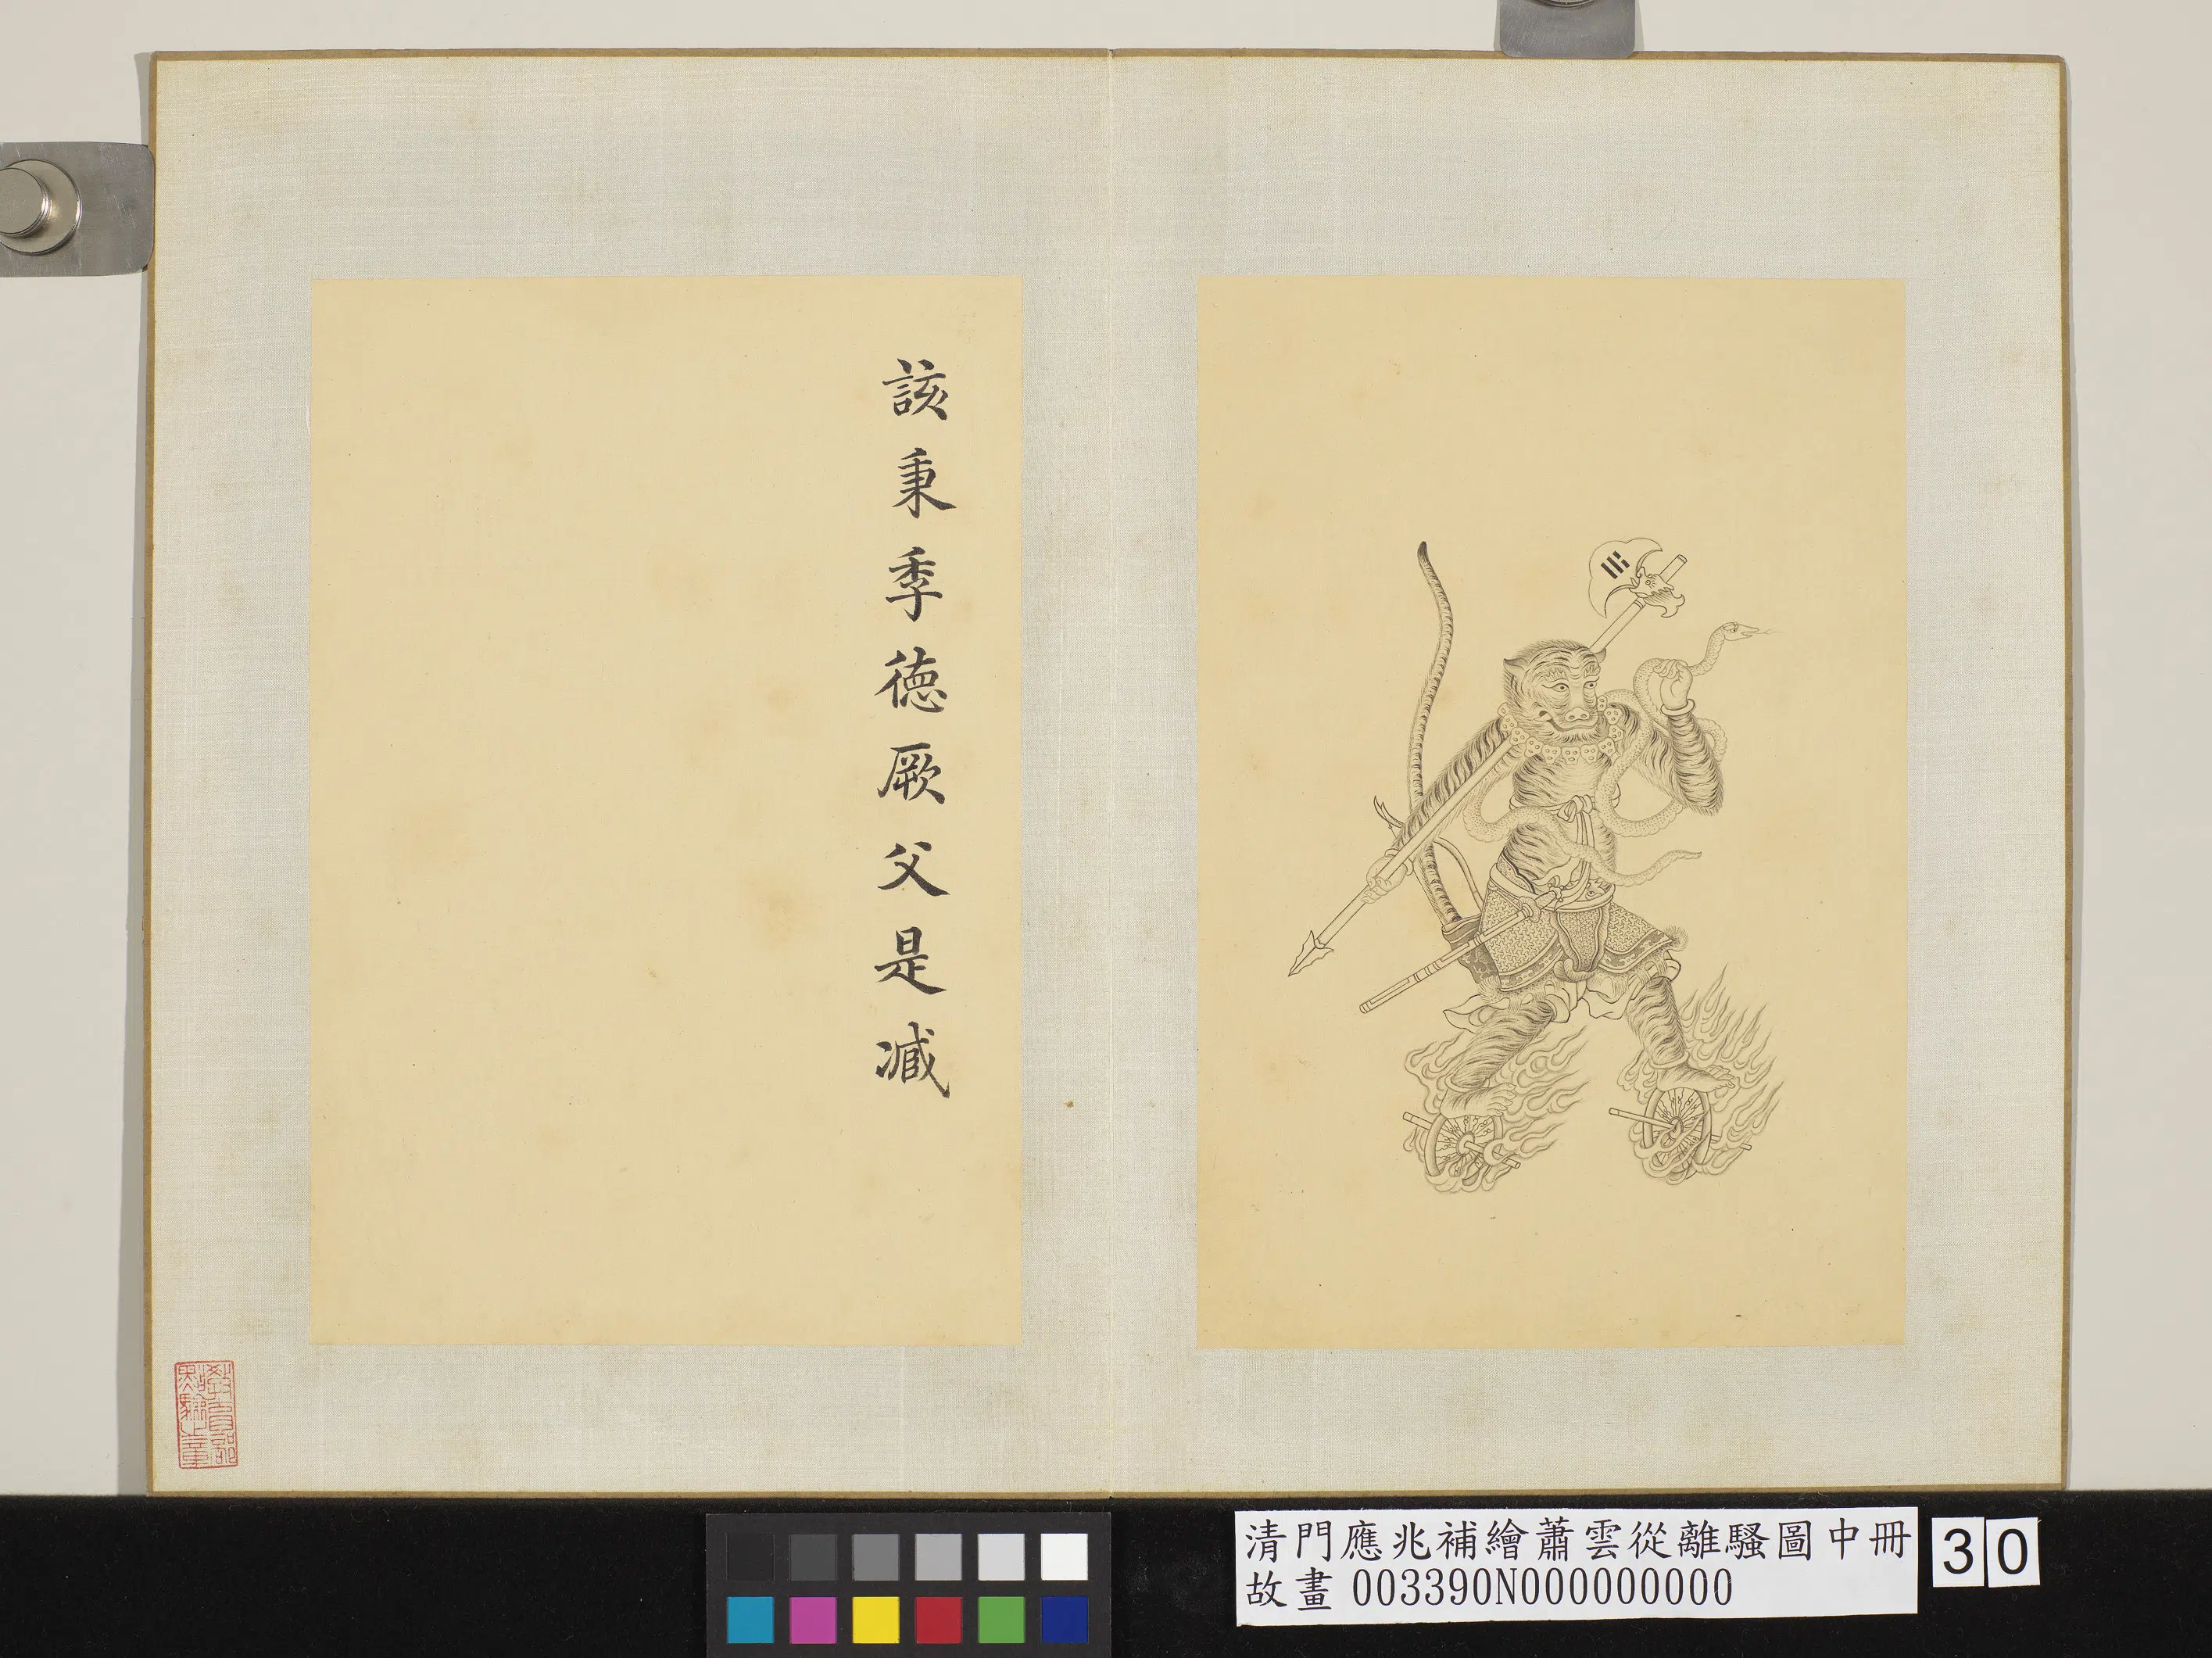 該秉季德厥父是臧
教育部
點驗之章
清門應兆補繪蕭雲從離騷圖中冊
故畫 003390N000000000
30